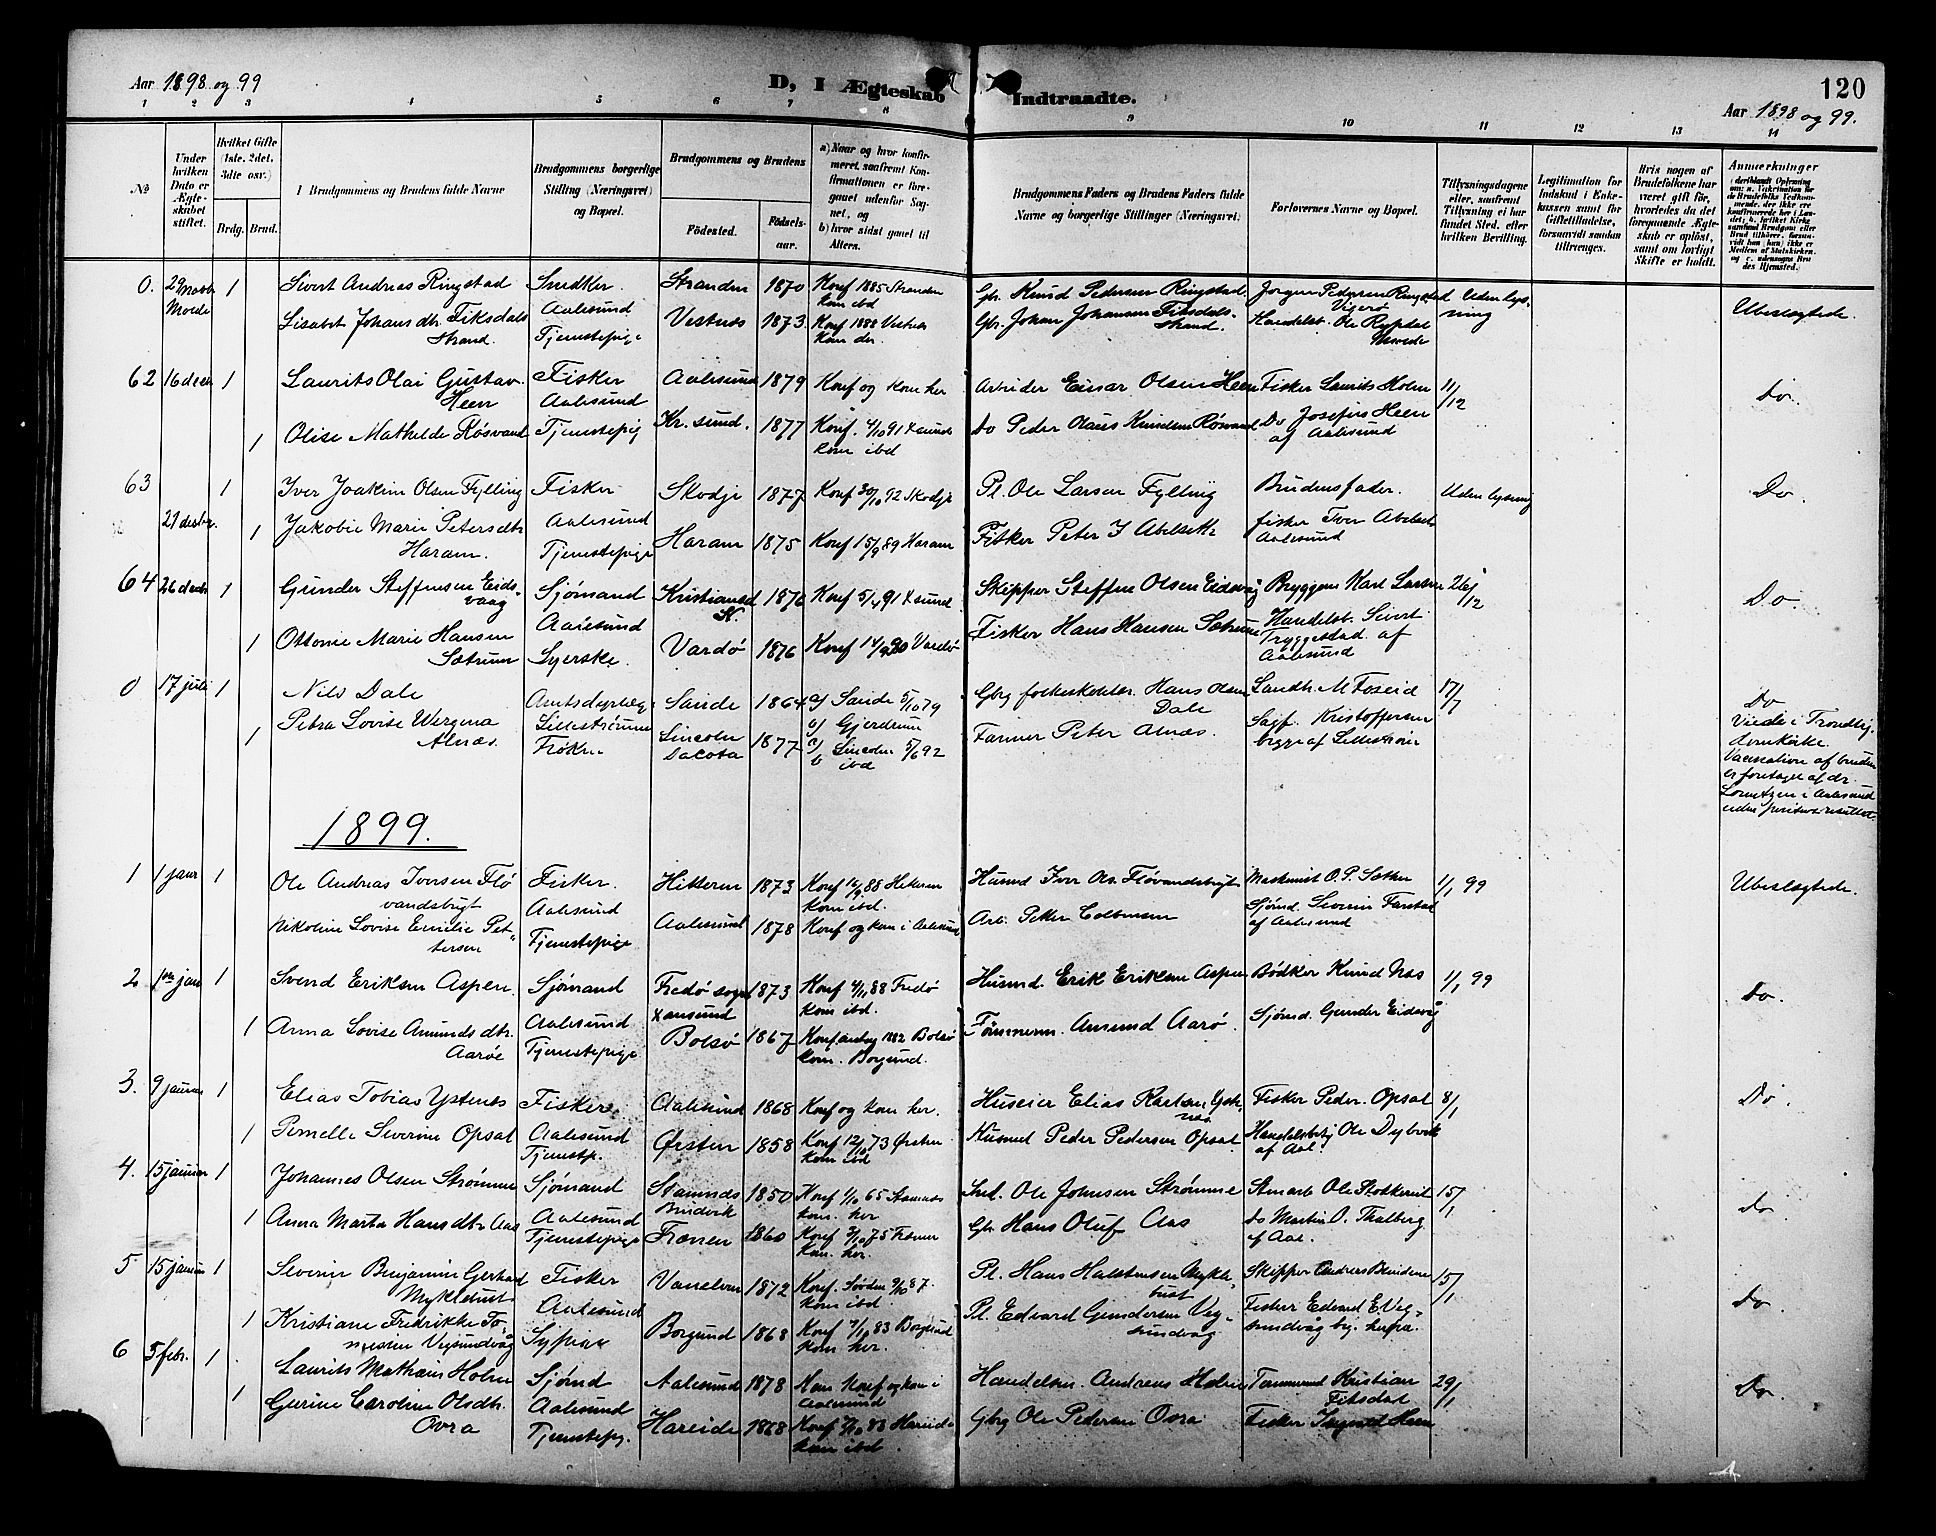 Aar 1898 og 99
D, I Ægteskab Indtraadte.
120
Aar 1898 og 99.
1 2 3 4 5 6 7 8 9 10 11 12 13 14
№
Under hvilken Dato er Ægteskabet stiftet.
Hvilket Gifte (1ste. 2det. 3dte osv.)
Brdg. Brud.
Brudgommens og Brudens fulde Navne
Brudgommens borgerlige Stilling (Næringsvei) og Bopæl.
Brudgommens og Brudens
Fødested. Fødselsaar.
a) Naar og hvor konfirmeret, saafremt Konfirmationen er foregaaet udenfor Sognet, og
b) hvor sidst gaaet til Alters.
Brudgommens Faders og Brudens Faders fulde Navne og borgerlige Stillinger (Næringsvei)
Forlovernes Navne og Bopæl.
Tillysningsdagene eller, saafremt Tillysning ei har fundet Sted, efter hvilken Bevilling.
Legitimation for Indskud i Enkekassen samt for Giftetilladelse, forsaavidt saadan tiltrænges.
Hvis nogen af Brudefolkene har været gift før, hvorledes da det foregaaende Ægteskab er opløst, samt om lovligt Skifte er holdt.
Anmærkninger
0. 29 novbr Molde 1 Sivert Andreas Ringstad Snedker Aalesund Stranden 1870 Konf 1885 Stranden kom ibd
Gbr. Knud Pedersen Ringstad. Jørgen Pedersen Ringstad Uden lysning Ubeslægtede.
Lisabet Johansdtr. Fiksdalsstrand. Tjenestepige Vestnes 1873. Konf 1888 Vestnes kom der.
Gbr. Johan Johansen Fiksdalsstrand. Handelsb. Ole Rypdal
62 16 decb 1 Laurits Olai Gustav Heen Fisker Aalesund Aalesund 1879 Konf og kom her
Arbeider Einar Olsen Heen Fisker Laurits Holm 11/12 Do.
1 Olise Mathilde Røsvand Tjenestepig Kr. sund. 1877 Konf. 4/10 91 Xsund kom ibd
Do Peder Olaus Knudsen Røsvand Do Josefins Heen af Aalesund
63 1 Iver Joakim Olsen Fylling Fisker Skodje 1877 Konf 30/10 92 Skodje
Pl. Ole Larsen Fylling Brudens fader. Uden lysning Do.
1 Jakobie Marie Petersdtr Haram. Aalesund Tjenestepige Haram 1875 Konf 15/9 89 Haram
Fisker Peter I Abelseth fisker Iver Abelseth Aalesund
64 26 decbr 1 Gunder Steffensen Eidsvaag Sjømand Aalesund Kristiansund N. 1876 Konf 5/4 91 Xsund.
Skipper Steffen Olsen Eidsvåg Bryggem Karl Larsen 26/12 Do.
1 Ottomie Marie Hansen Sætrum Syerske. Vardø 1876 Konf 14/9 90 Vardø
Fisker Hans Hansen Sætrum Handelsb. Sivert Tryggestad af Aalesund
0 17 juli 1 Nils Dale Amtsdyrlæge Lillestrømmen Sande 1864 a/ Sande 5/10 79 b/ Gjerdrum
Gbrg folkeskolelr. Hans Olsen Dale Landh. M Foseid 17/7 Do
1 Petra Lovise Wergena Alnæs. Frøken Lincoln Dacota 1877 a/ Lincoln 5/6 92 b/ ibd
Farmer Peter Alnæs. Sagf. Kristoffersen begge af Lillestrøm
Viede i Trondhj. domkirke. Vaccination af bruden er foretaget af dr. Lorentzen i Aalesund uden positivt resultat.
1899.
1 1 janr 1 Ole Andreas Iversen Fløvandsbygt Fisker. Aalesund Hitteren 1873 Konf 16/9 88 Hitteren kom ibd.
Husmd Iver Ols. Fløvandsbygt Maskinist O. P. Sæther 1/1 99 Ubeslægtede.
Nikoline Lovise Emilie Pettersen Tjenestepige Aalesund 1878 Konf og kom i Aalesund
Arb. Petter Colbensen Sjømd. Severin Farstad af Aalesund
2 1 jan 1 Svend Eriksen Aspen. Sjømand Aalesund Fredø sogn Xansund 1873 Konf 4/11 88 Fredø kom ibd.
Husmd Erik Eriksen Aspen Bødker Knud Næs 1/1 99 Do.
1 Anna Lovise Amundsdtr. Aarøe Tjenestepige Bolsø 1867 Konf. 1882 Bolsø kom. Borgund.
Tømmerm. Amund Aarø. Sjømd. Gunder Eidsvåg
3. 9 januar 1 Elias Tobias Ystenes Fisker. Aalesund Aalesund 1868 Konf og kom her.
Huseier Elias Ystenes Fisker Peder Opsal 8/1 Do.
1 Pernelle Severine Opsal Tjenestp. Ørsten 1858 Konf 12/10 73 Ørsten kom ibd
Husmd Peder Pedersen Opsal Handelsbetj Ole Dybvik af Aal.
4. 15 januar 1 Johannes Olsen Strømme Sjømand Aalesund Stamnes Bruvik 1850 Konf 1/10 65 Stamnes kom. her
Ole Johnsen Strømme Ole Stokkereit 15/1 Do.
1 Anna Marta Hansdtr Aas Tjenestepige Frænen 1860 Konf 3/10 75 Frænen kom. her.
Gbr Hans Oluf Aas do Martin O. Thalberg af Aal.
5 15 januar 1 Severin Benjamin Gerhard Myklebust Fisker Aalesund Vanelven 1872 Konf. 9/10 87. kom ibd.
Pl. Hans Halstensen Myklebust Skipper Andreas 15/1 Do.
1 Kristiane Fredrikke Vegsundvåg Sypige Borgund 1868 Konf 7/10 83 Borgund kom her.
Pl. Edvard Gundersen Vegsundvåg Fisker Edvard E Vegsundvåg beg. herfra.
6 5 febr. 1 Laurits Mathias Holm Sjømd Aalesund Aalesund 1878 Konf og kom i Aalesund
Handelsm. Andreas Holm Kristian Fiksdal 29/1 Do.
1 Gurine Caroline Olsdtr. Ovra Tjenestepg. Hareide 1868 Konf 7/10 83 Hareide kom ibd.
Gbrg Ole Pedersen Ovra Fisker Heen